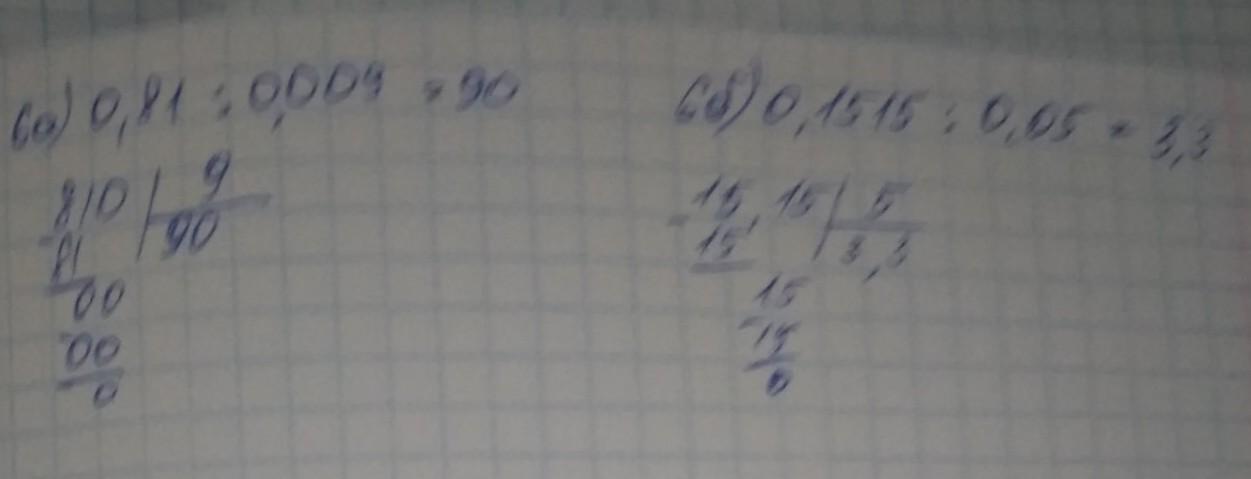 6а) 0,81 : 0,009 = 90
810 | 9
- 81 | 90
00
- 00
0
6б) 0,1515 : 0,05 = 3,3
- 15,15 | 5
15 | 3,3
15
- 15
0